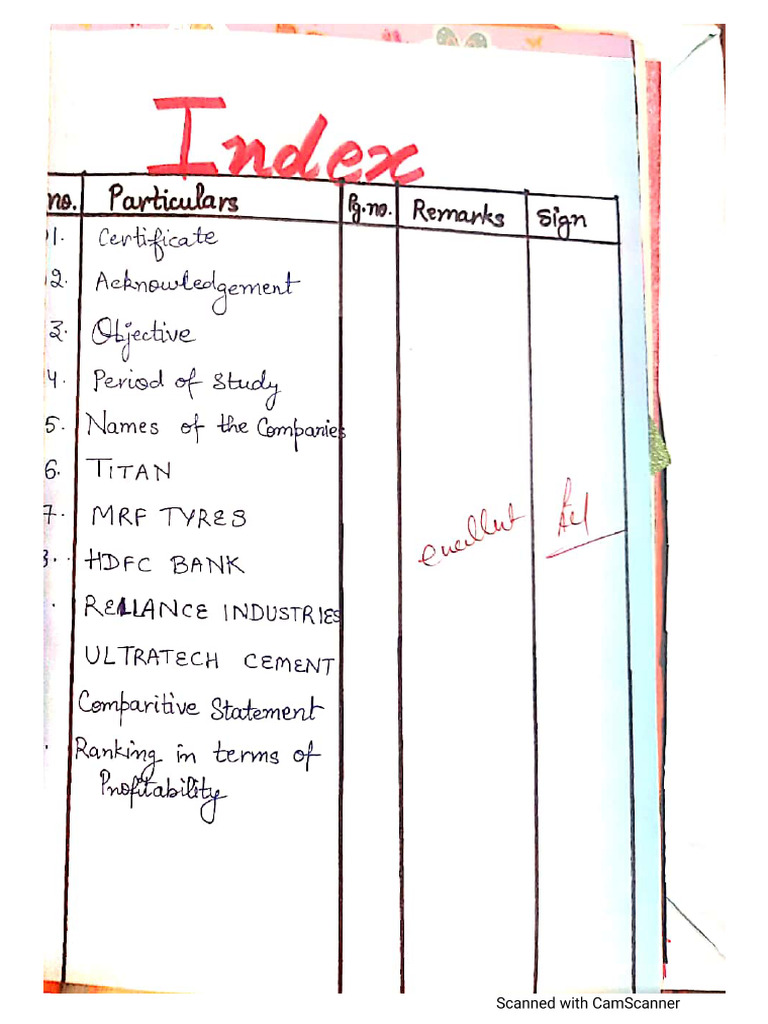 Index
no. Particulars Pg.no. Remarks Sign
1. Certificate
2. Acknowledgement
3. Objective
4. Period of Study
5. Names of the Companies
6. TITAN
7. MRF TYRES
excellent
HDFC BANK
RELIANCE INDUSTRIES
ULTRATECH CEMENT
Comparitive Statement
Ranking in terms of
Profitability
Scanned with CamScanner